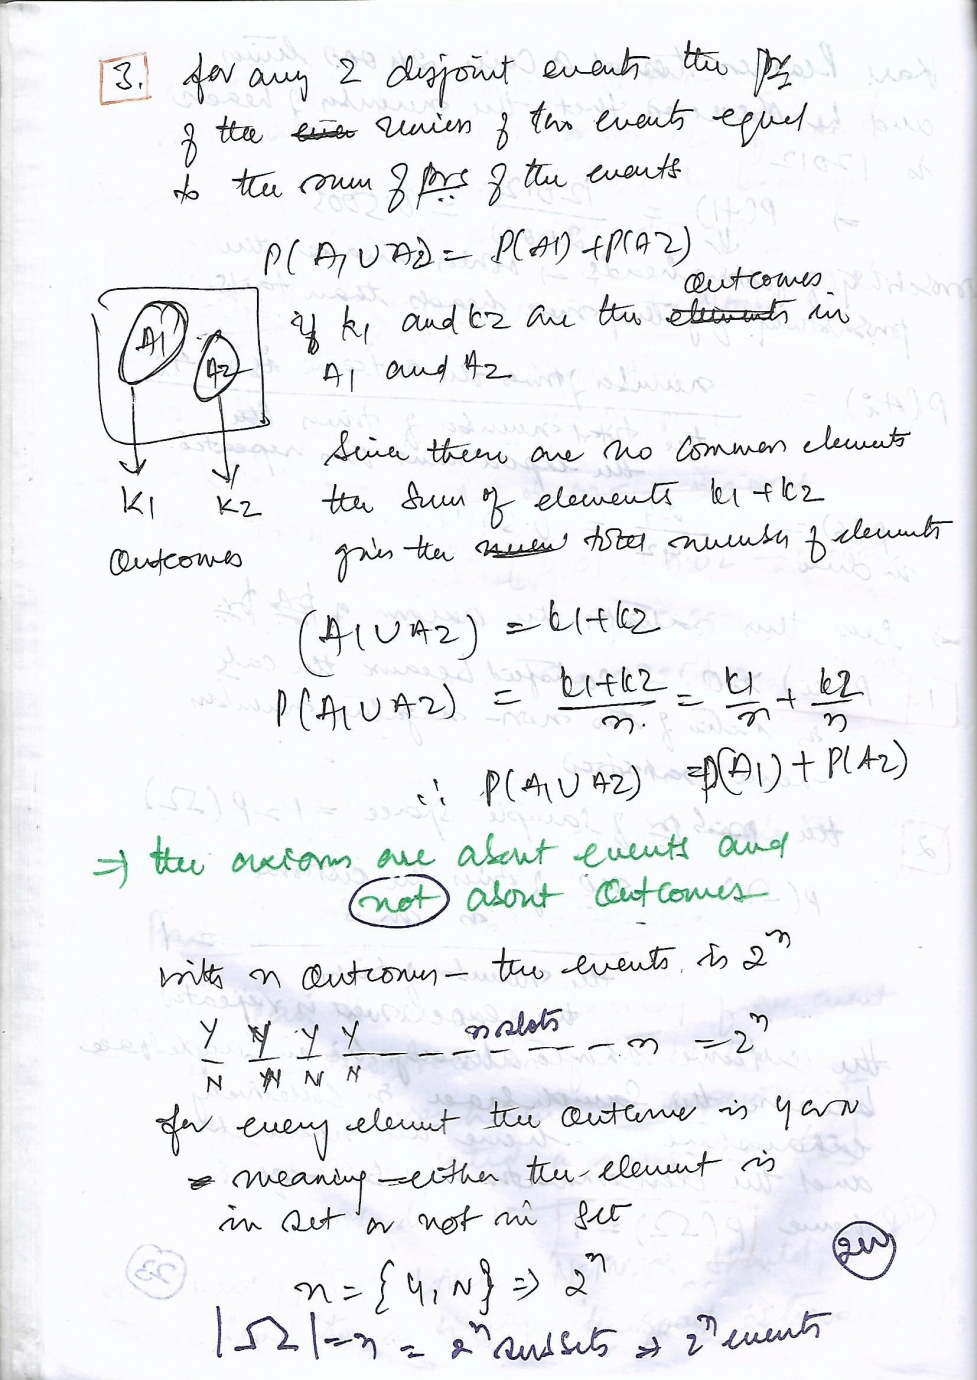 3. for any 2 disjoint events the pr
of the union of two events equal
to the sum of prs of the events
P(A1 ∪ A2) = P(A1) + P(A2)
outcomes
if k1 and k2 are the elements in
A1 and A2
A1
A2
Since there are no common elements
K1 K2
the sum of elements k1 + k2
Outcomes
gives the total number of elements
(A1 ∪ A2) = k1 + k2
P(A1 ∪ A2) = k1+k2/n. = k1/n + k2/n
∴ P(A1 ∪ A2) = P(A1) + P(A2)
⇒ the axioms are about events and
not about Outcomes
with n Outcomes – the events is 2^n
n slots
Y Y Y Y – – – – – – – n = 2^n
N N N N
for every element the outcome is Y or N
meaning – either the element is
in set or not in set
n = {Y, N} ⇒ 2^n
|Ω| = n = 2^n subsets ⇒ 2^n events